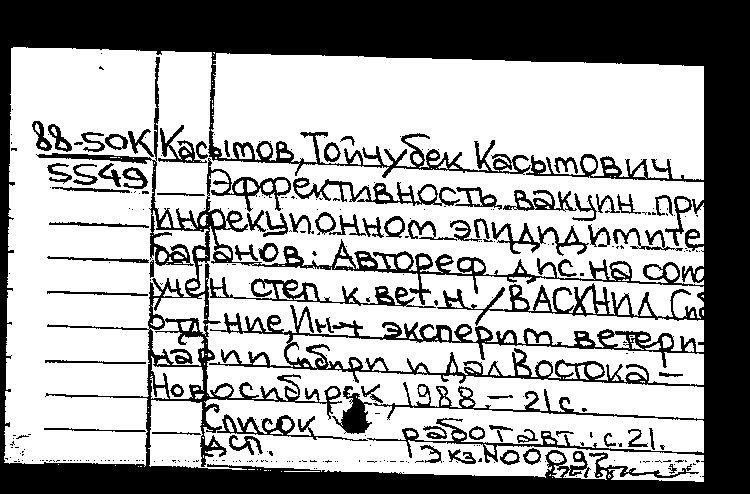 88-50К Касымов, Тойчубек Касымович.
5549 Эффективность вакцин при
инфекционном эпидидимите
баранов: Автореф. дис. на соис
учен. степ. к. вет. н. / ВАСХНИЛ Сиб
отд-ние, Ин-т эксперим. ветери-
нарии Сибири и Дал Востока —
Новосибирск, 1988. — 21 с.
Список работ авт.: с. 21.
ДСП. Экз. N00097